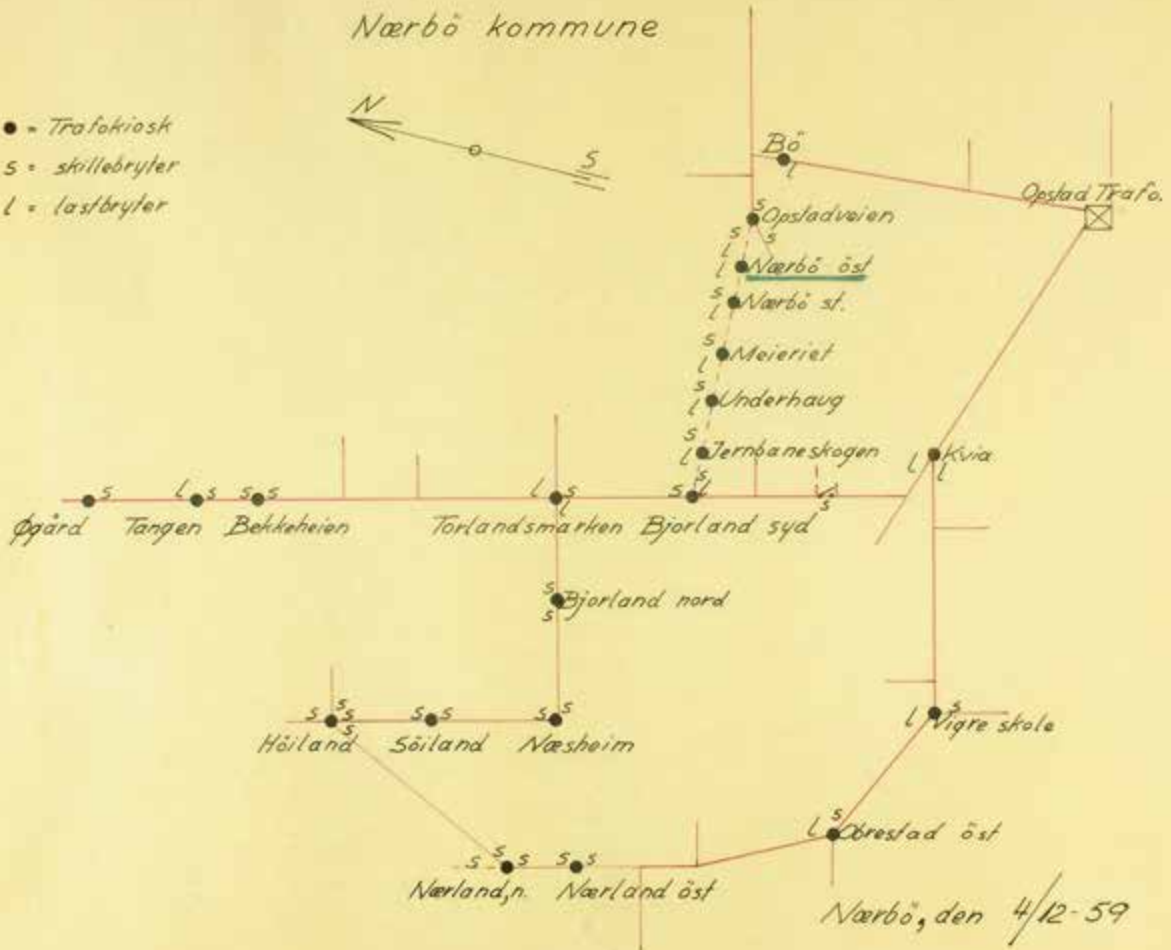 Nærbö kommune
● = Trafokiosk
s = skillebryter
l = lastbryter
N
S
Bö
l
Opstad Trafo.
s
Opstadveien
s s
l
l Nærbö öst
s
l Nærbö st.
s
l Meieriet
s
l Underhaug
s
l Jernbaneskogen
l Kvia
l
s l
s
s
Øgård
s
l s
Tangen
s s
Bekkeheien
l s
l
Torlandsmarken
Bjorland syd
s
Bjorland nord
s
s s
s s
Höiland
s s
Söiland
s s
Næsheim
s
l Vigre skole
s
l Obrestad öst
s s s
Nærland, n.
s s
Nærland öst
Nærbö, den 4/12-59